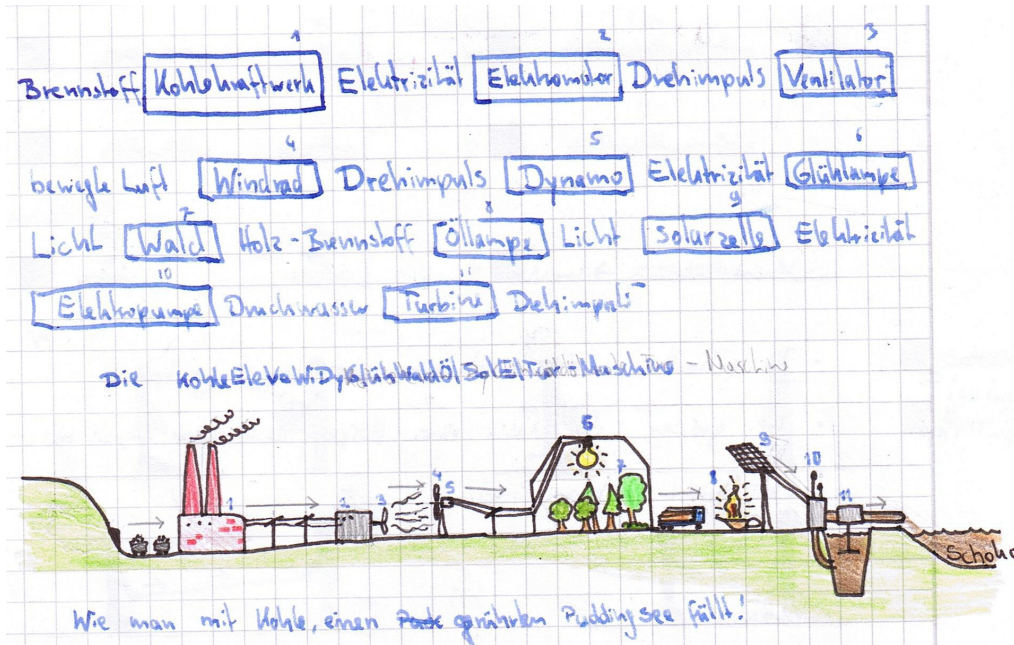 1 2 3
Brennstoff Kohlekraftwerk Elektrizität Elektromotor Drehimpuls Ventilator
4 5 6
bewegte Luft Windrad Drehimpuls Dynamo Elektrizität Glühlampe
7 8 9
Licht Wald Holz-Brennstoff Öllampe Licht Solarzelle Elektrizität
10 11
Elektropumpe Druckwasser Turbine Drehimpuls
Die KohleEleVeWiDyGlühWaldÖlSolElTur-Maschine - Maschine
6
9
4 7 8 10
1 2 3 5 11
Schoko
Wie man mit Kohle, einen gerührten Puddingsee füllt!